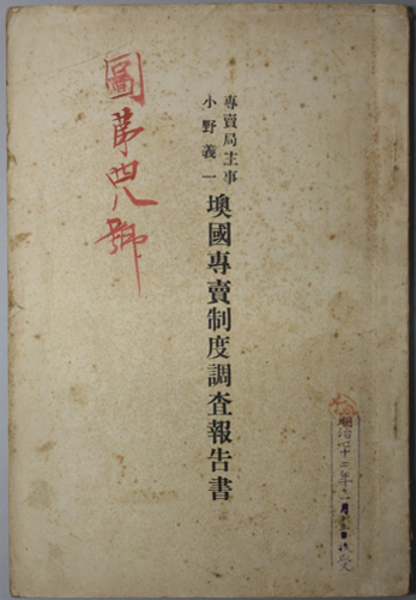 專賣局主事
小野義一
墺國專賣制度調査報告書
圖第四八號
明治四十二年一月